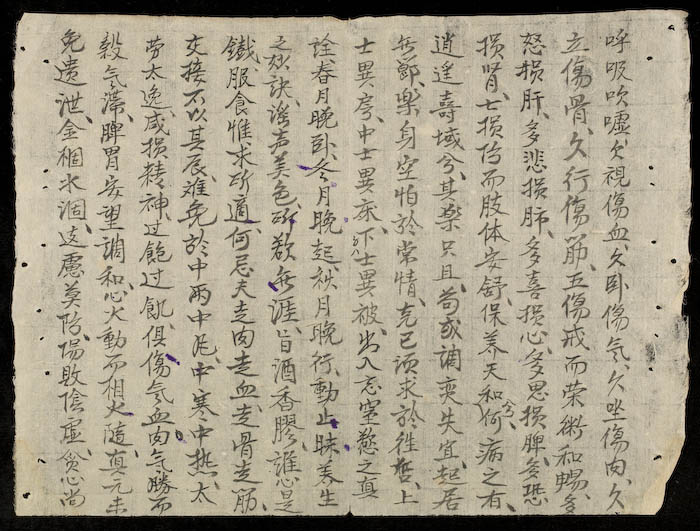 呼吸吹噓、久視傷血、久臥傷氣、久坐傷肉、久
立傷骨、久行傷筋、五傷戒而榮術和暢、多
怒損肝、多悲損肺、多喜損心、多思損脾、多恐
損腎、七損傷而肢体安舒、保養天和何病之有、
逍遥壽域兮、其樂只且、苟或調爕失宜、起居
無節、樂身空怕於常情、克己須求於往哲、上
士異房、中士異床、下士異被、出入忌室慾之真
詮、春月晚卧、冬月晚起、秋月晚行、動止昧养生
之秘訣、滛声美色、所欲無涯、旨酒香膠、誰心是
鐵、服食惟求所適、何忌夫走肉走血走骨走筋、
交接不以其辰、难免於中雨中风、中寒中热、太
劳太逸、咸損精神、过飽过飢、俱傷氣血、肉氣勝而
穀气滞、脾胃安望調和、心火動而相火隨、真元未
免遺泄、金梱水涸、这慮莫防、陽敗陰虛、貪心尚